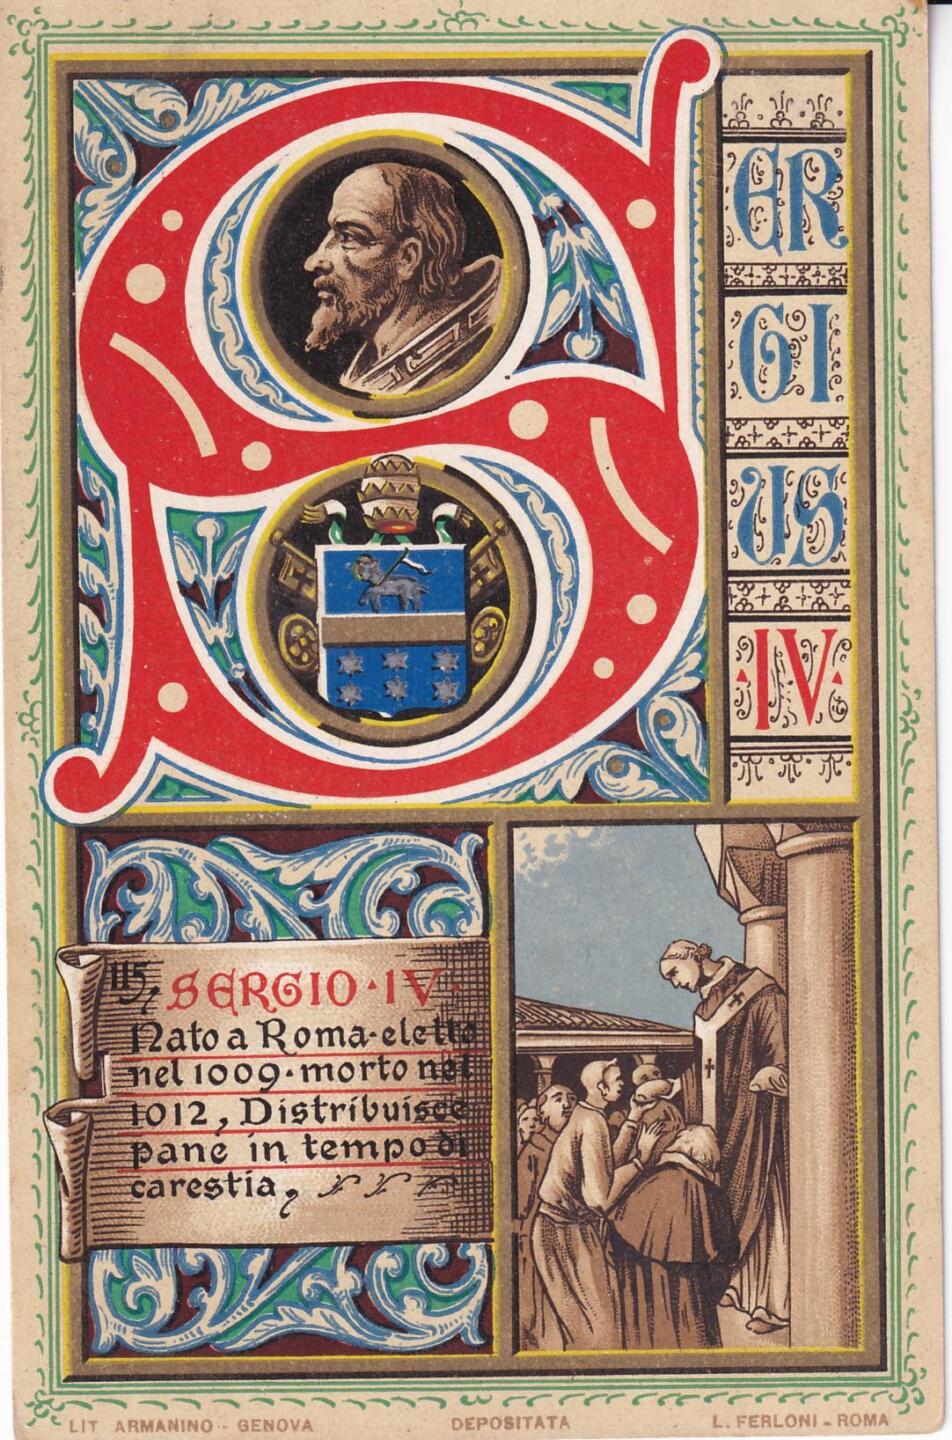 S
ER
GI
US
·IV·
115, SERGIO·IV·
Nato a Roma·eletto
nel 1009·morto nel
1012, Distribuisce
pane in tempo di
carestia,
LIT ARMANINO - GENOVA
DEPOSITATA
L. FERLONI - ROMA